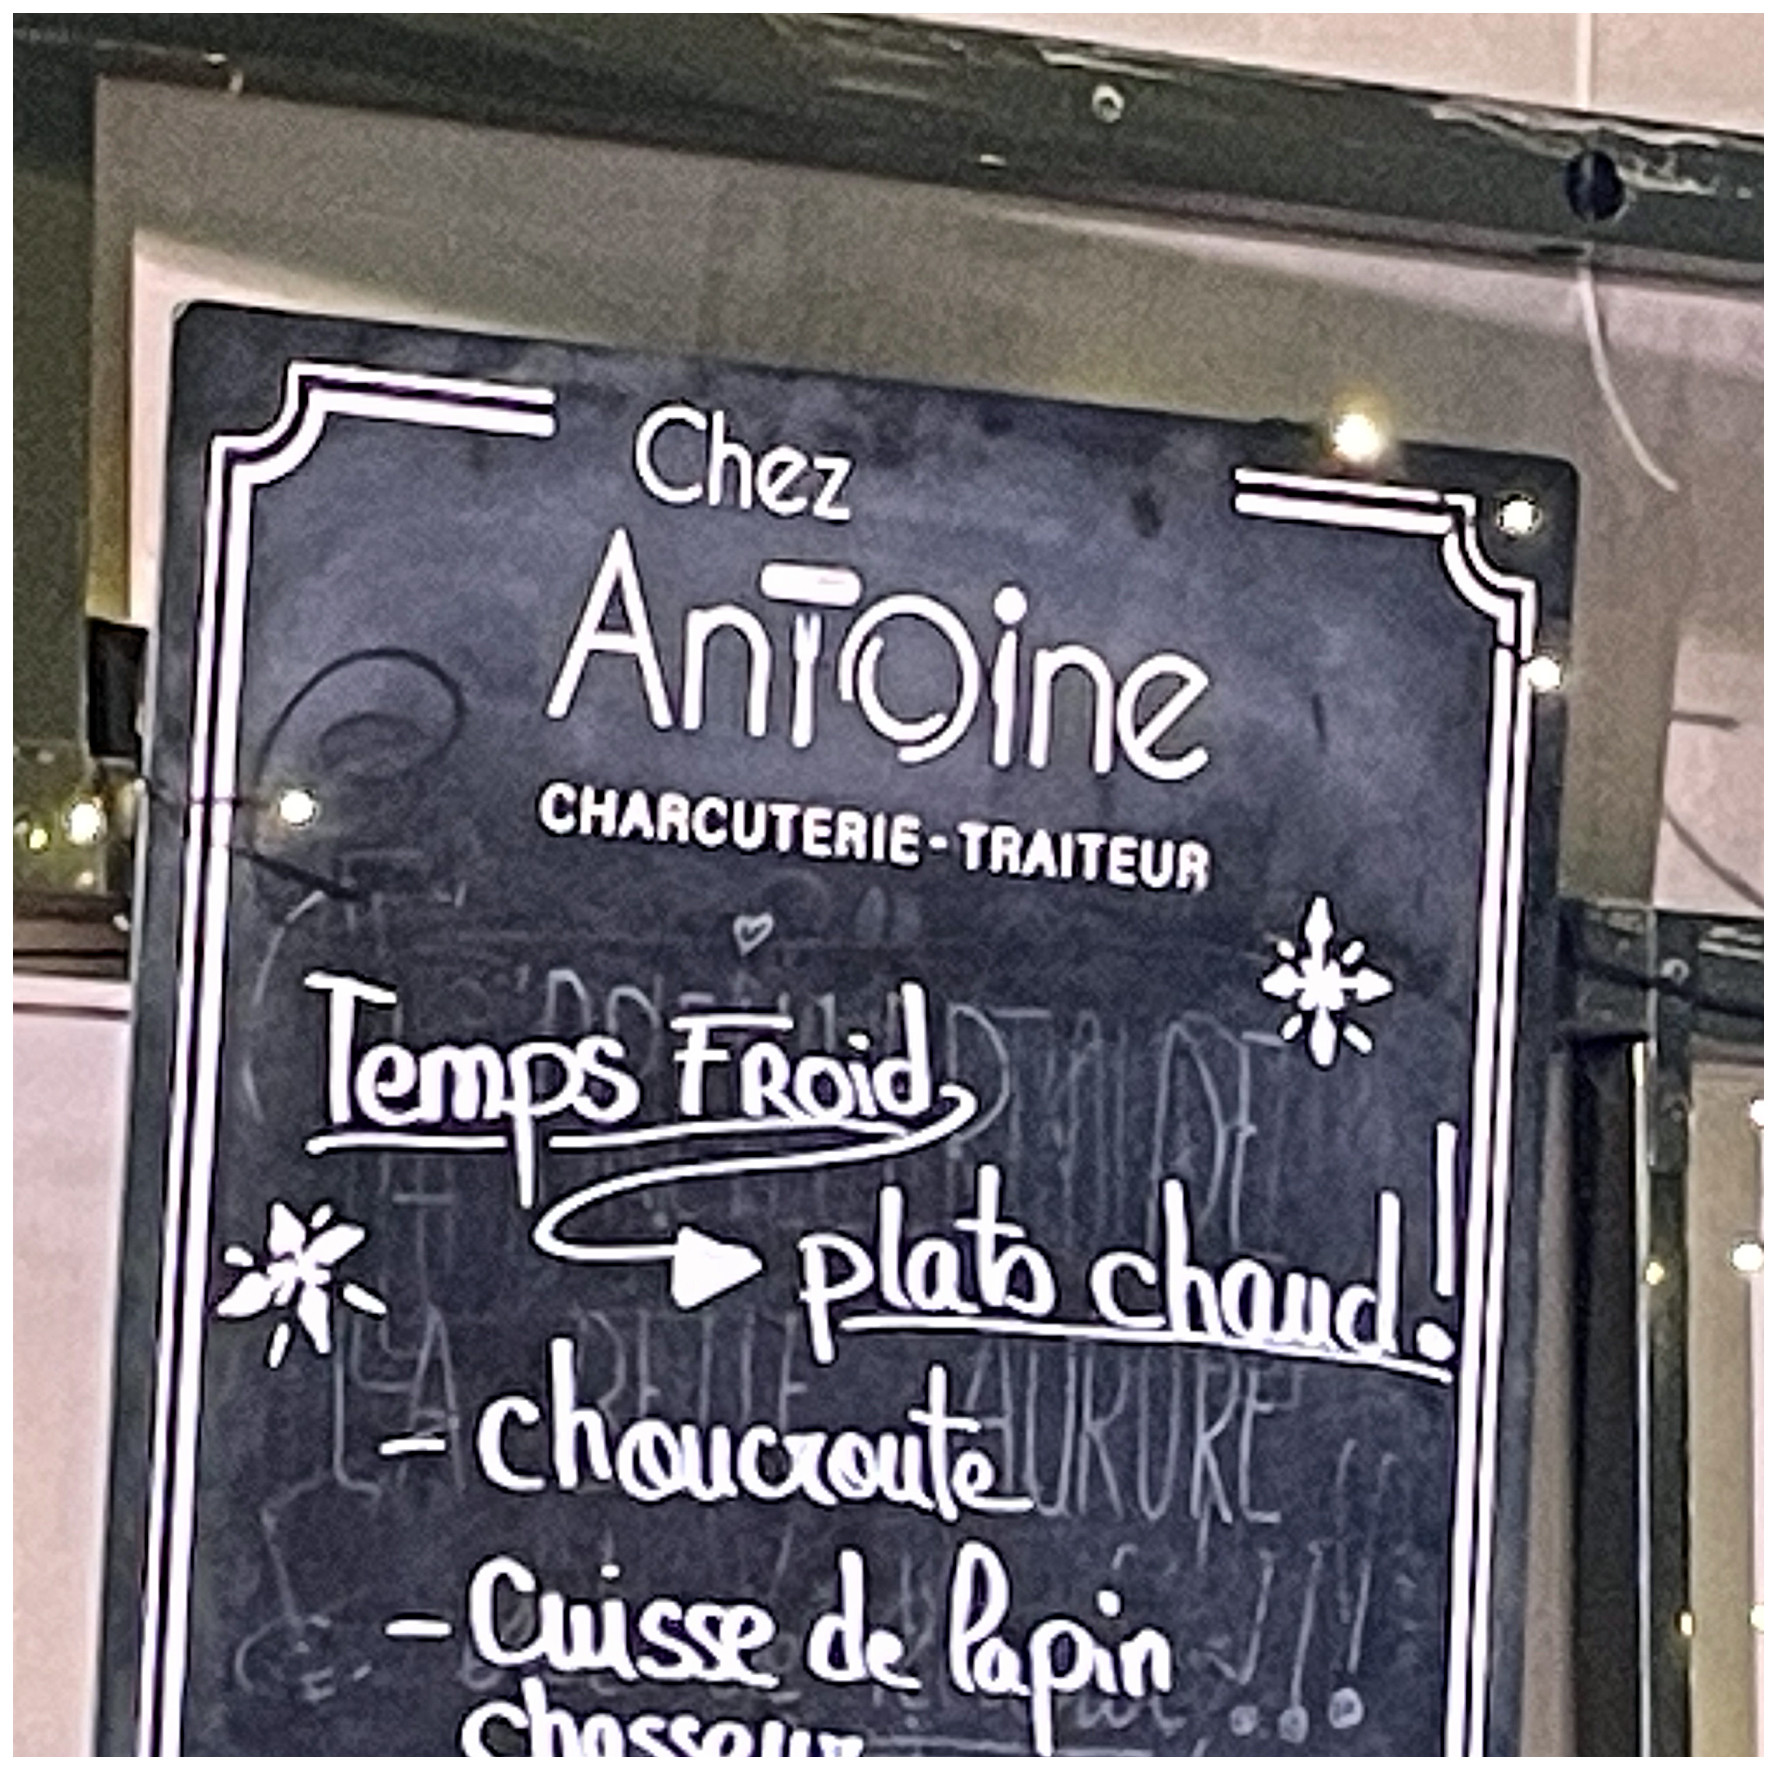 Chez
Antoine
CHARCUTERIE - TRAITEUR
Temps Froid
plats chaud !
- choucroute
- Cuisse de lapin
chasseur
LA BELLE AURORE